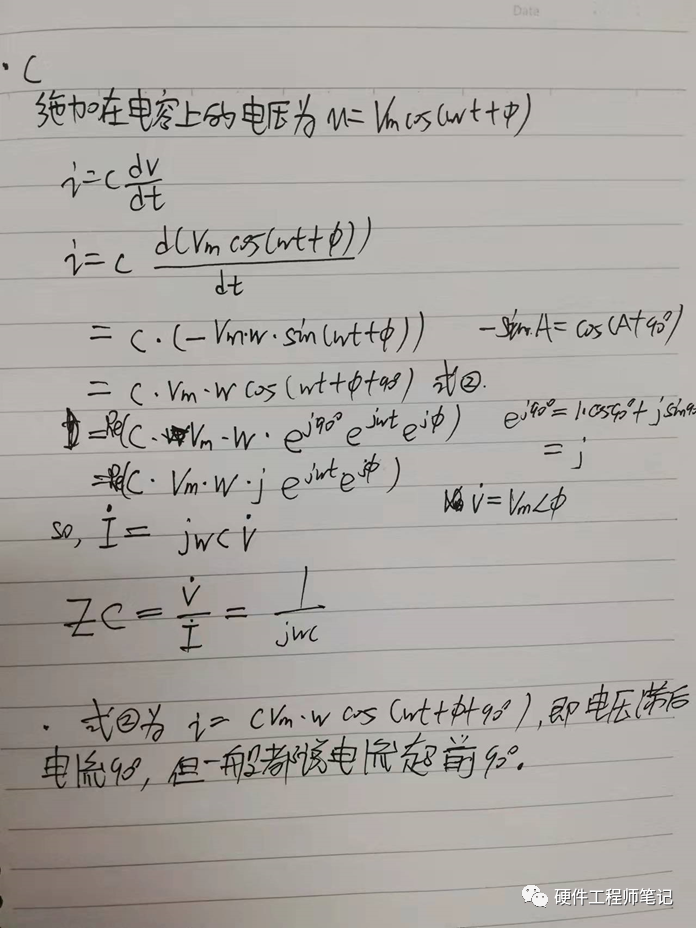 Data
· C
施加在电容上的电压为 u = Vm cos(wt+ϕ)
i = C dv/dt
i = C d(Vm cos(wt+ϕ))/dt
= C·(-Vm·w·sin(wt+ϕ)) -sin A = cos(A+90°)
= C·Vm·w cos(wt+ϕ+90°) 式②.
= Re(C·Vm·w·e^{j90°} e^{jwt} e^{jϕ}) e^{j90°} = 1·cos90° + j sin90
= Re(C·Vm·w·j e^{jwt} e^{jϕ}) = j
so, İ = jwC V̇ V̇ = Vm∠ϕ
ZC = V̇/İ = 1/jwc
· 式②为 i = CVm·w cos(wt+ϕ+90°), 即电压滞后
电流90°, 但一般都说电流超前90°.
硬件工程师笔记